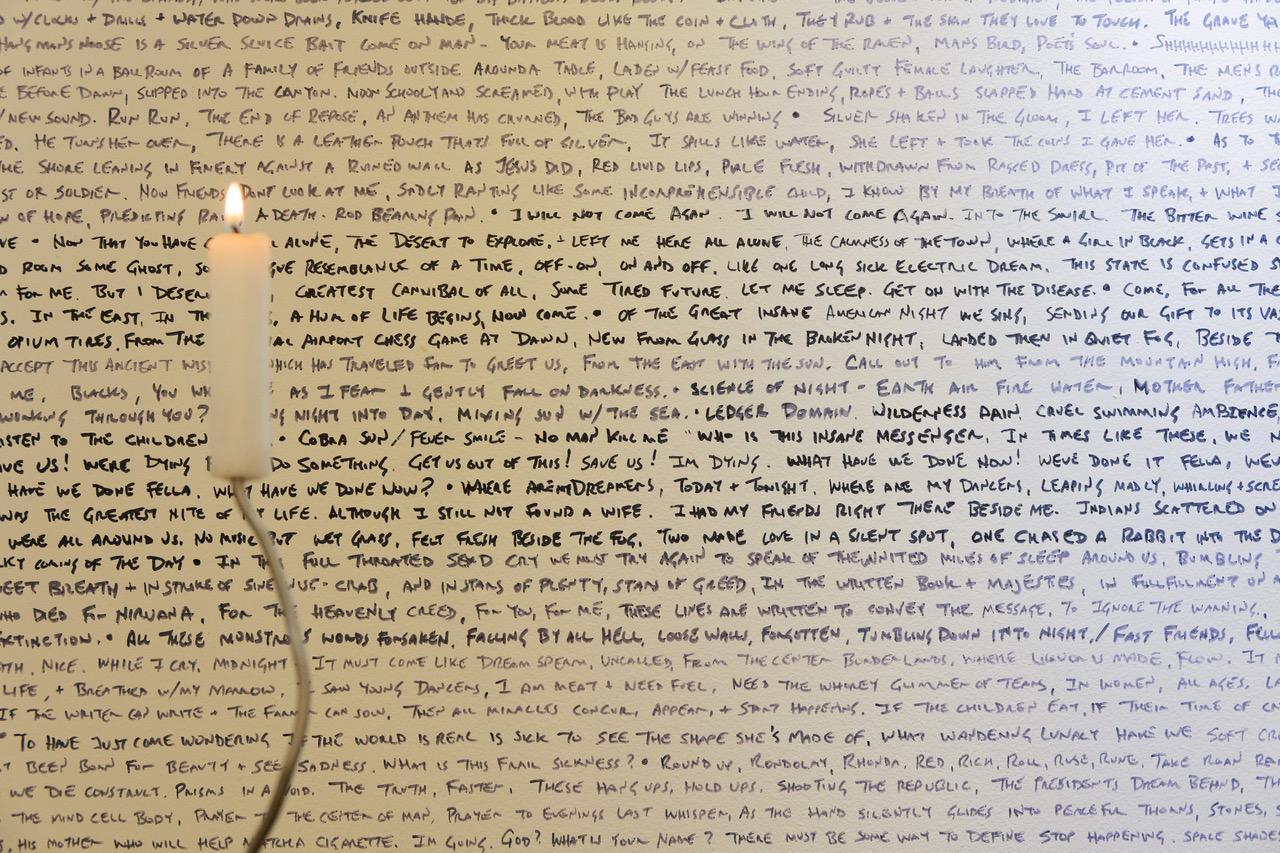 W/CLOCKS + DRILLS + WATER DOWN DRAINS, KNIFE HANDE, THICK BLOOD LIKE THE COIN + CLOTH, THEY RUB + THE SKIN THEY LOVE TO TOUCH. THE GRAVE
HANGMANS NOOSE IS A SILVER SLUICE BAIT COME ON MAN - YOUR MEAT IS HANGING, ON THE WING OF THE RAVEN, MANS BIRD, POETS' SOUL. • SHHHHHHHHH
OF INFANTS IN A BALLROOM OF A FAMILY OF FRIENDS OUTSIDE AROUND A TABLE, LADEN W/FEAST FOOD, SOFT GUILTY FEMALE LAUGHTER, THE BARROOM, THE MENS R
E BEFORE DAWN, SLIPPED INTO THE CANYON. NOON SCHOOLYARD SCREAMED, WITH PLAY THE LUNCH HOUR ENDING, ROPES + BALLS SLAPPED HARD AT CEMENT SAND, TH
/NEW SOUND. RUN RUN, THE END OF REPOSE, AN ANTHEM HAS CHURNED, THE BAD GUYS ARE WINNING • SILVER SHAKEN IN THE GLOOM, I LEFT HER. TREES W
ED. HE TURNS HER OVER, THERE IS A LEATHER POUCH THATS FULL OF SILVER, IT SPILLS LIKE WATER, SHE LEFT + TOOK THE COINS I GAVE HER. • AS TO T
THE SHORE LEANING IN FINERY AGAINST A RUINED WALL AS JESUS DID, RED LIVID LIPS, PALE FLESH, WITHDRAWN FROM RAGGED DRESS, PIT OF THE PAST, + SE
ST OR SOLDIER. NOW FRIENDS DONT LOOK AT ME, SADLY RANTING LIKE SOME INCOMPREHENSIBLE CHILD, I KNOW BY MY BREATH OF WHAT I SPEAK, + WHAT I
N OF HOPE, PREDICTING RAI A DEATH. ROD BEARING PAIN. • I WILL NOT COME AGAIN. I WILL NOT COME AGAIN. INTO THE SWIRL. THE BITTER WINE
VE • NOW THAT YOU HAVE G L ALONE, THE DESERT TO EXPLORE, + LEFT ME HERE ALL ALONE, THE CALMNESS OF THE TOWN, WHERE A GIRL IN BLACK, GETS IN A
D ROOM SOME GHOST, SO GUE RESEMBLANCE OF A TIME, OFF-ON, ON AND OFF, LIKE ONE LONG SICK ELECTRIC DREAM. THIS STATE IS CONFUSED S
FOR ME. BUT I DESER , GREATEST CANNIBAL OF ALL, SOME TIRED FUTURE. LET ME SLEEP. GET ON WITH THE DISEASE. • COME, FOR ALL THE
S. IN THE EAST, IN TH , A HUM OF LIFE BEGINS, NOW COME. • OF THE GREAT INSANE AMERICAN NIGHT WE SING, SENDING OUR GIFT TO ITS VAS
OPIUM TIRES, FROM THE AL AIRPORT CHESS GAME AT DAWN, NEW FROM GLASS IN THE BROKEN NIGHT, LANDED THEN IN QUIET FOG, BESIDE T
ACCEPT THIS ANCIENT WIS WHICH HAS TRAVELED FAR TO GREET US, FROM THE EAST WITH THE SUN. CALL OUT TO HIM FROM THE MOUNTAIN HIGH, F
ME, BLACKS, YOU WH AS I FEAR + GENTLY FALL ON DARKNESS. • SCIENCE OF NIGHT - EARTH AIR FIRE WATER, MOTHER FATHER
WORKING THROUGH YOU? NG NIGHT INTO DAY, MIXING SUN W/ THE SEA. • LEDGER DOMAIN. WILDERNESS PAIN, CRUEL SWIMMING AMBIENCE,
ISTEN TO THE CHILDREN • COBRA SUN/FEVER SMILE - NO MAN KILL ME "WHO IS THIS INSANE MESSENGER, IN TIMES LIKE THESE, WE N
AVE US! WERE DYING F DO SOMETHING. GET US OUT OF THIS! SAVE US! IM DYING. WHAT HAVE WE DONE NOW! WEVE DONE IT FELLA, WEV
HAVE WE DONE FELLA. WHAT HAVE WE DONE NOW? • WHERE ARE MY DREAMERS, TODAY + TONIGHT. WHERE ARE MY DANCERS, LEAPING MADLY, WHIRLING + SCRE
WAS THE GREATEST NITE OF MY LIFE. ALTHOUGH I STILL NOT FOUND A WIFE. I HAD MY FRIENDS RIGHT THERE BESIDE ME. INDIANS SCATTERED ON
WERE ALL AROUND US. NO MUSIC BUT WET GRASS, FELT FRESH BESIDE THE FOG, TWO MADE LOVE IN A SILENT SPOT, ONE CHASED A RABBIT INTO THE D
LKY COMING OF THE DAY • IN THE FULL THROATED SEXD CRY WE MUST TRY AGAIN TO SPEAK OF THE UNITED MILES OF SLEEP AROUND US, BUMBLING
EET BREATH + IN STROKE OF SINE NUSE- CRAB, AND IN STARS OF PLENTY, STARS OF GREED, IN THE WRITTEN BOOK + MAJESTIES, IN FULLFILLMENT
WHO DIED FOR NIRVANA, FOR THE HEAVENLY CREED, FOR YOU, FOR ME, THESE LINES ARE WRITTEN TO CONVEY THE MESSAGE, TO IGNORE THE WARNING,
EXTINCTION. • ALL THESE MONSTROUS WORDS FORSAKEN, FALLING BY ALL HELL, LOOSE WALLS, FORGOTTEN, TUMBLING DOWN INTO NIGHT,/FAST FRIENDS, FELL
TH, NICE. WHILE I CRY, MIDNIGHT IT MUST COME LIKE DREAM SPERM, UNCALLED, FROM THE CENTER BORDERLANDS, WHERE LIQUOR IS MADE, FLOW. IT
LIFE, + BREATHED W/MY MARROW, I SAW YOUNG DANCERS, I AM MEAT + NEED FUEL, NEED THE WHOREY GLIMMER OF TEARS, IN WOMEN, ALL AGES. LA
IF THE WRITER CAN WRITE + THE FARMER CAN SOW, THEN ALL MIRACLES CONCUR, APPEAR, + START HAPPENING. IF THE CHILDREN EAT, IF THEIR TIME OF CR
• TO HAVE JUST COME WONDERING IF THE WORLD IS REAL IS SICK TO SEE THE SHAPE SHE'S MADE OF, WHAT WANDERING LUNACY HAVE WE SOFT CR
BEEN BORN FOR BEAUTY + SEE SADNESS. WHAT IS THIS FRAIL SICKNESS? • ROUND UP, RONDOLAY, RHONDA. RED, RICH, ROLL, RUSE, RUNE. TAKE ROAN
WE DIE CONSTRUCT. PRISMS IN A VOID. THE TRUTH, FASTER, THESE HANGUPS, HOLD UPS. SHOOTING THE REPUBLIC, THE PRESIDENTS DREAM BEHIND, TH
THE MIND CELL BODY, PRAYER TO THE CENTER OF MAN, PRAYER TO EVENINGS LAST WHISPER, AS THE HAND SILENTLY GLIDES INTO PEACEFUL THORNS, STONES,
, HIS MOTHER WHO WILL HELP MATCH A CIGARETTE. IM GOING. GOD? WHAT IS YOUR NAME? THERE MUST BE SOME WAY TO DEFINE STOP HAPPENING. SPACE SHADES